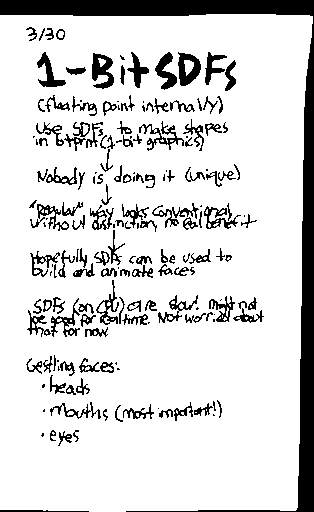 3/30
1-Bit SDFs
(floating point internally)
Use SDFs to make shapes
in btprnt (1-bit graphics)
Nobody is doing it (unique)
"Regular" way looks conventional,
without distinction, no real benefit
Hopefully SDFs can be used to
build and animate faces
SDFs (on CPU) are slow! Might not
be good for realtime. Not worried about
that for now
Gestling faces:
• heads
• mouths (most important!)
• eyes